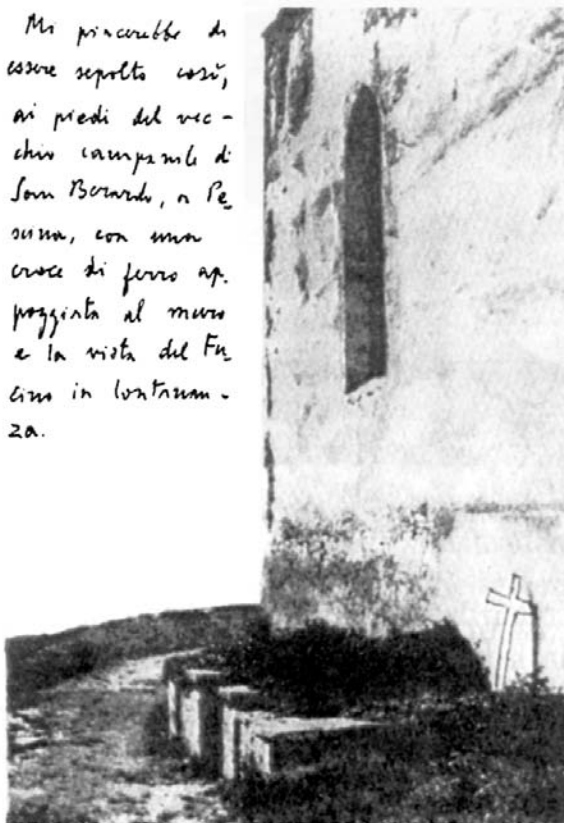 Mi piacerebbe di
essere sepolto così,
ai piedi del vec-
chio campanile di
San Berardo, a Pe_
scina, con una
croce di ferro ap.
poggiata al muro
e la vista del Fu_
cino in lontanan-
za.